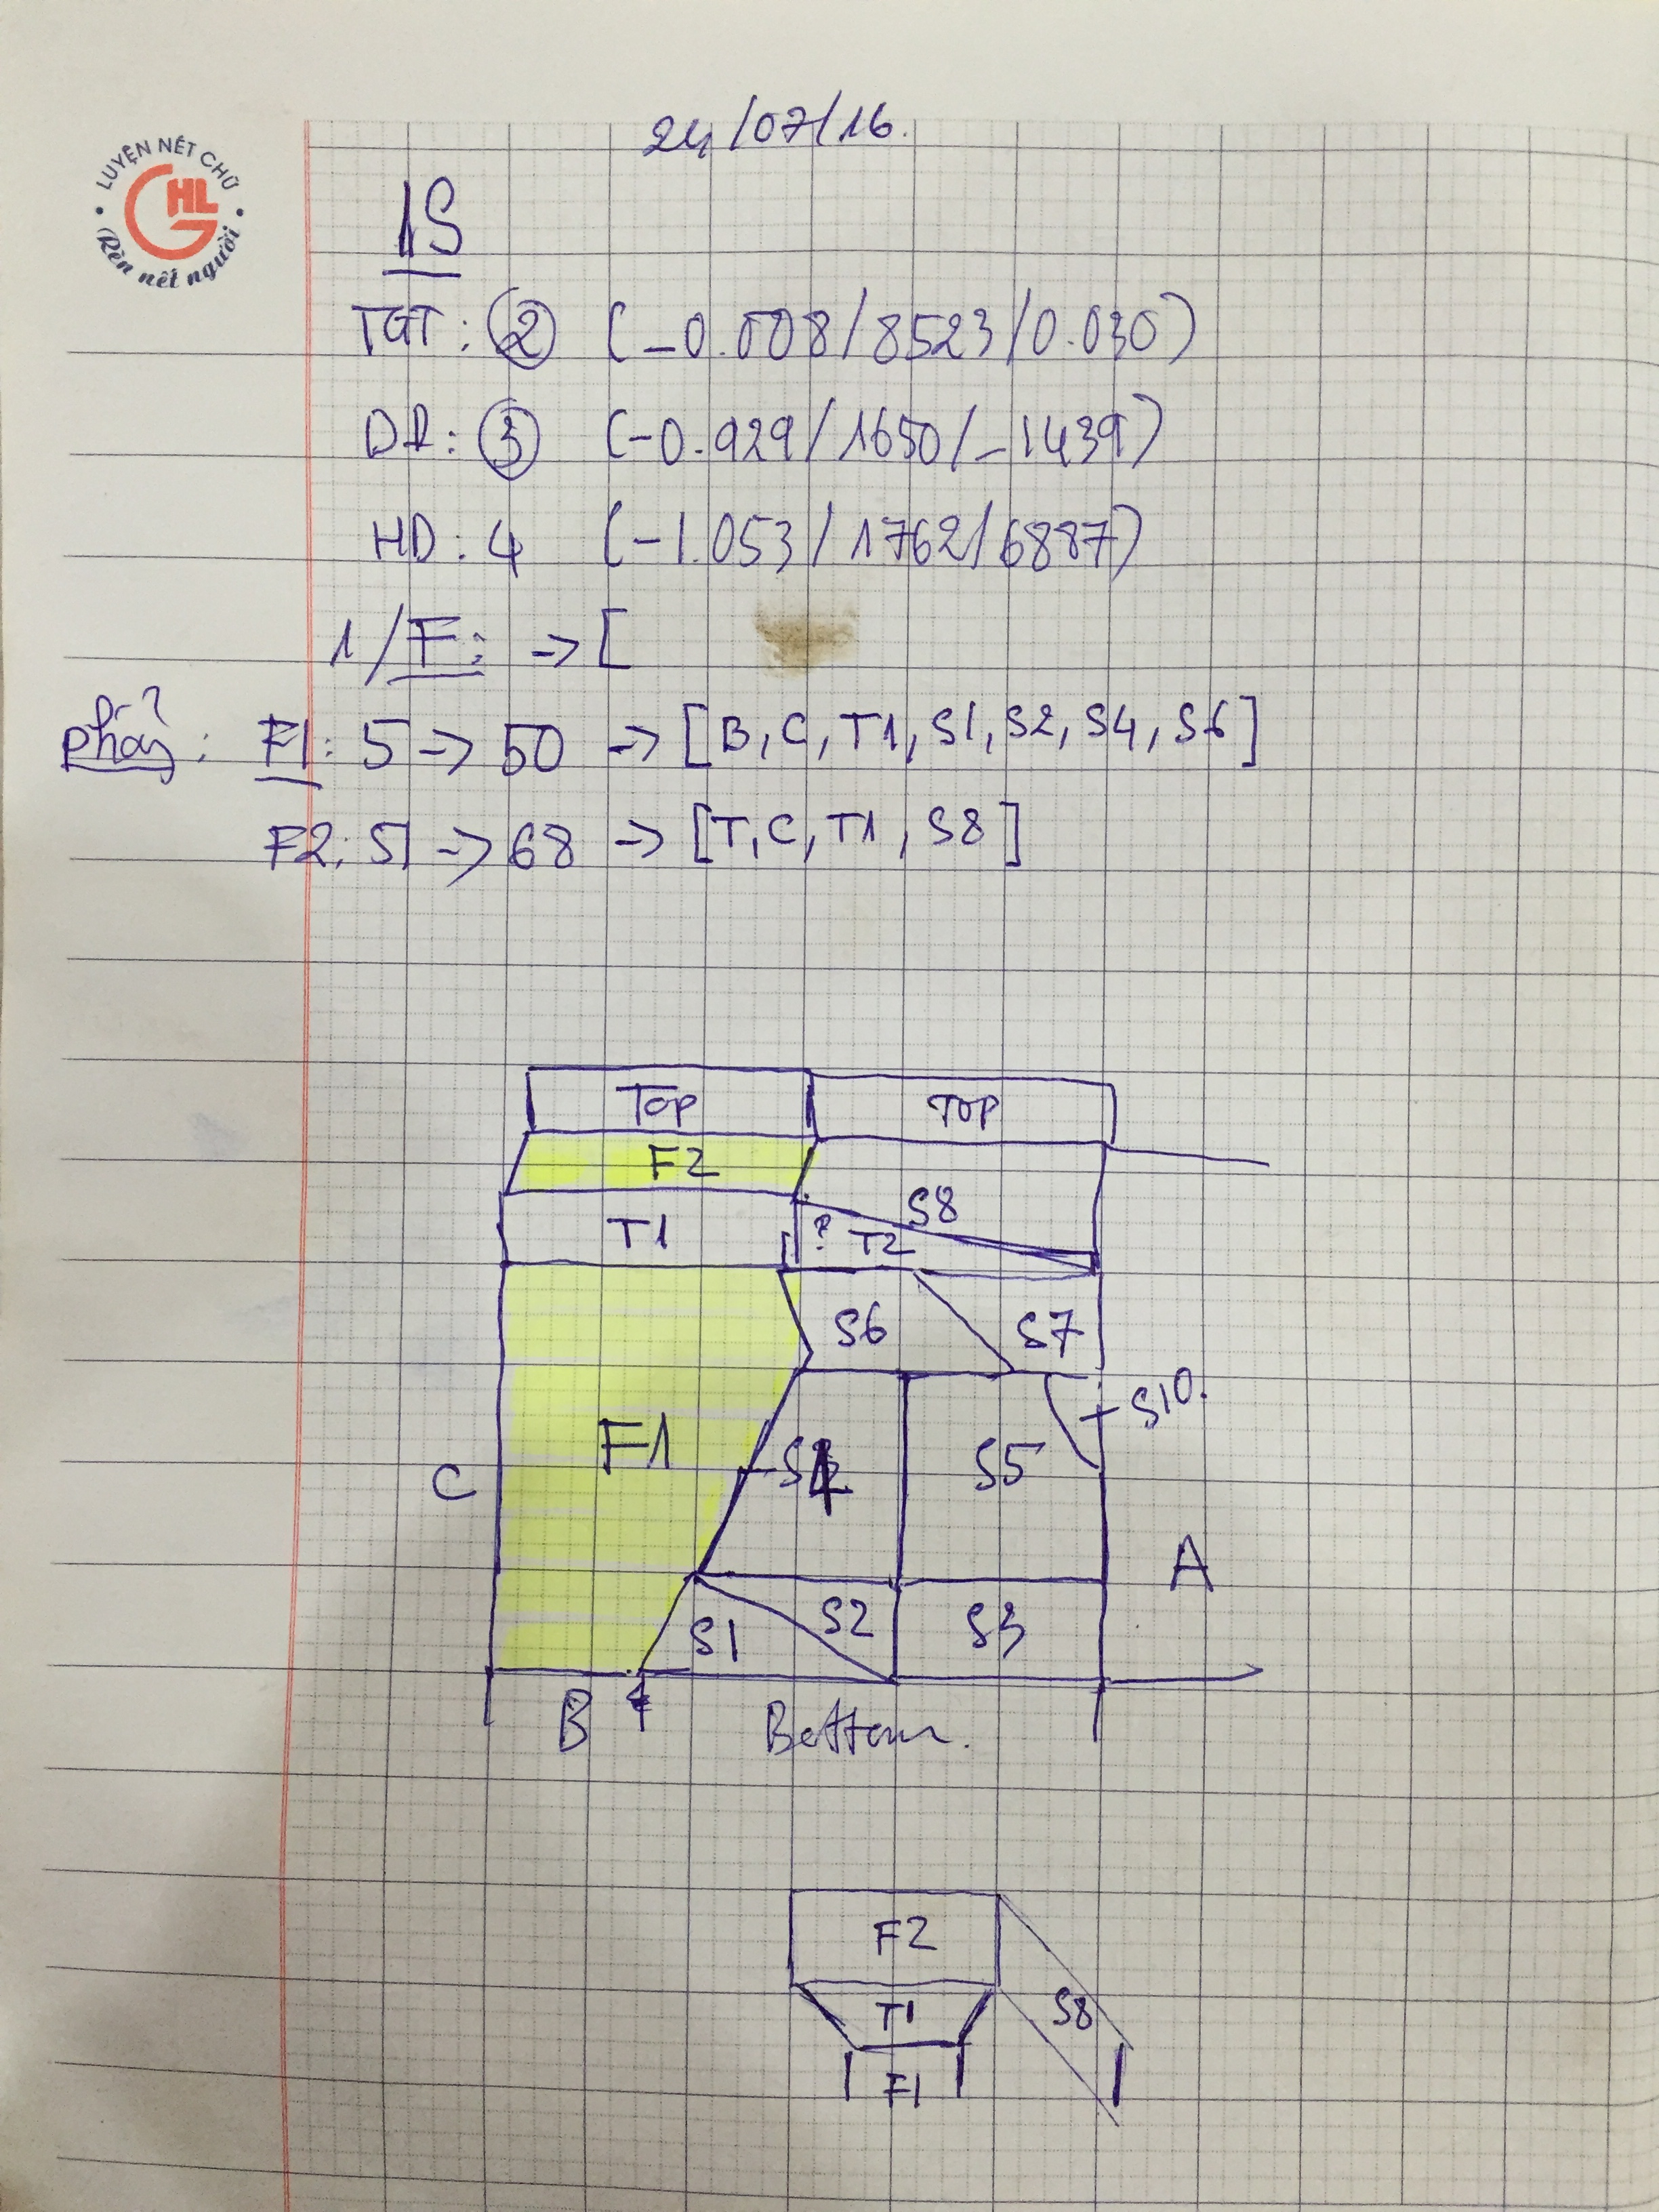 24/07/16.
LUYỆN NÉT CHỮ
HL
(Rèn nết người)
1S
TGT: 2 (-0.008/8523/0.030)
DR: 3 (-0.929/1650/-1439)
HD: 4 (-1.053/1762/6887)
1/F: -> [
F1: 5 -> 50 -> [B, C, T1, S1, S2, S4, S6]
F2: 51 -> 68 -> [T, C, T1, S8]
Top TOP
F2
S8
T1 ? T2
S6 S7
S10.
F1 S4 S5
C
A
S1 S2 S3
B Bottom.
F2
T1 S8
F1